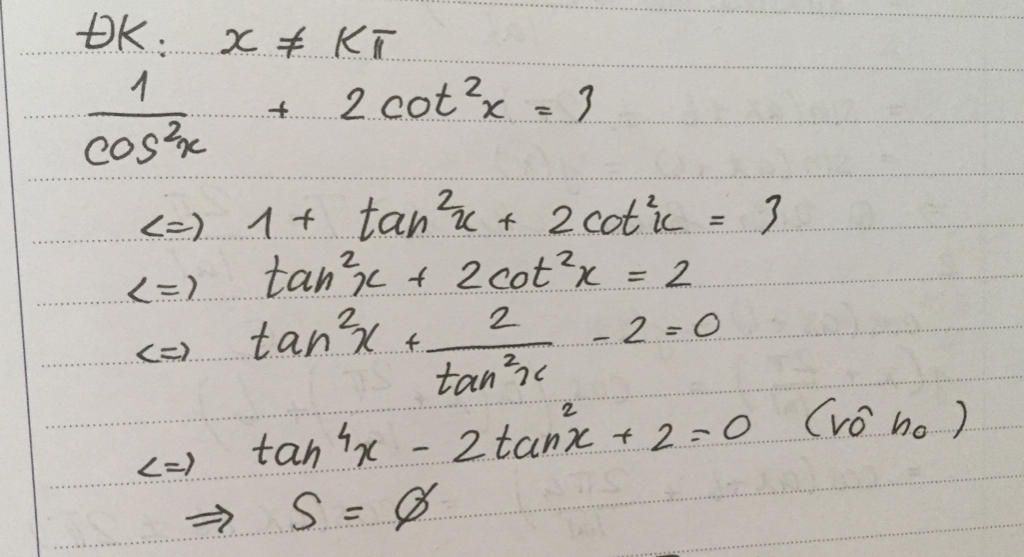 ĐK: x ≠ Kπ
1/cos²x + 2cot²x = 3
<=> 1 + tan²x + 2cot²x = 3
<=> tan²x + 2cot²x = 2
<=> tan²x + 2/tan²x - 2 = 0
<=> tan⁴x - 2tan²x + 2 = 0 (vô no)
=> S = ∅